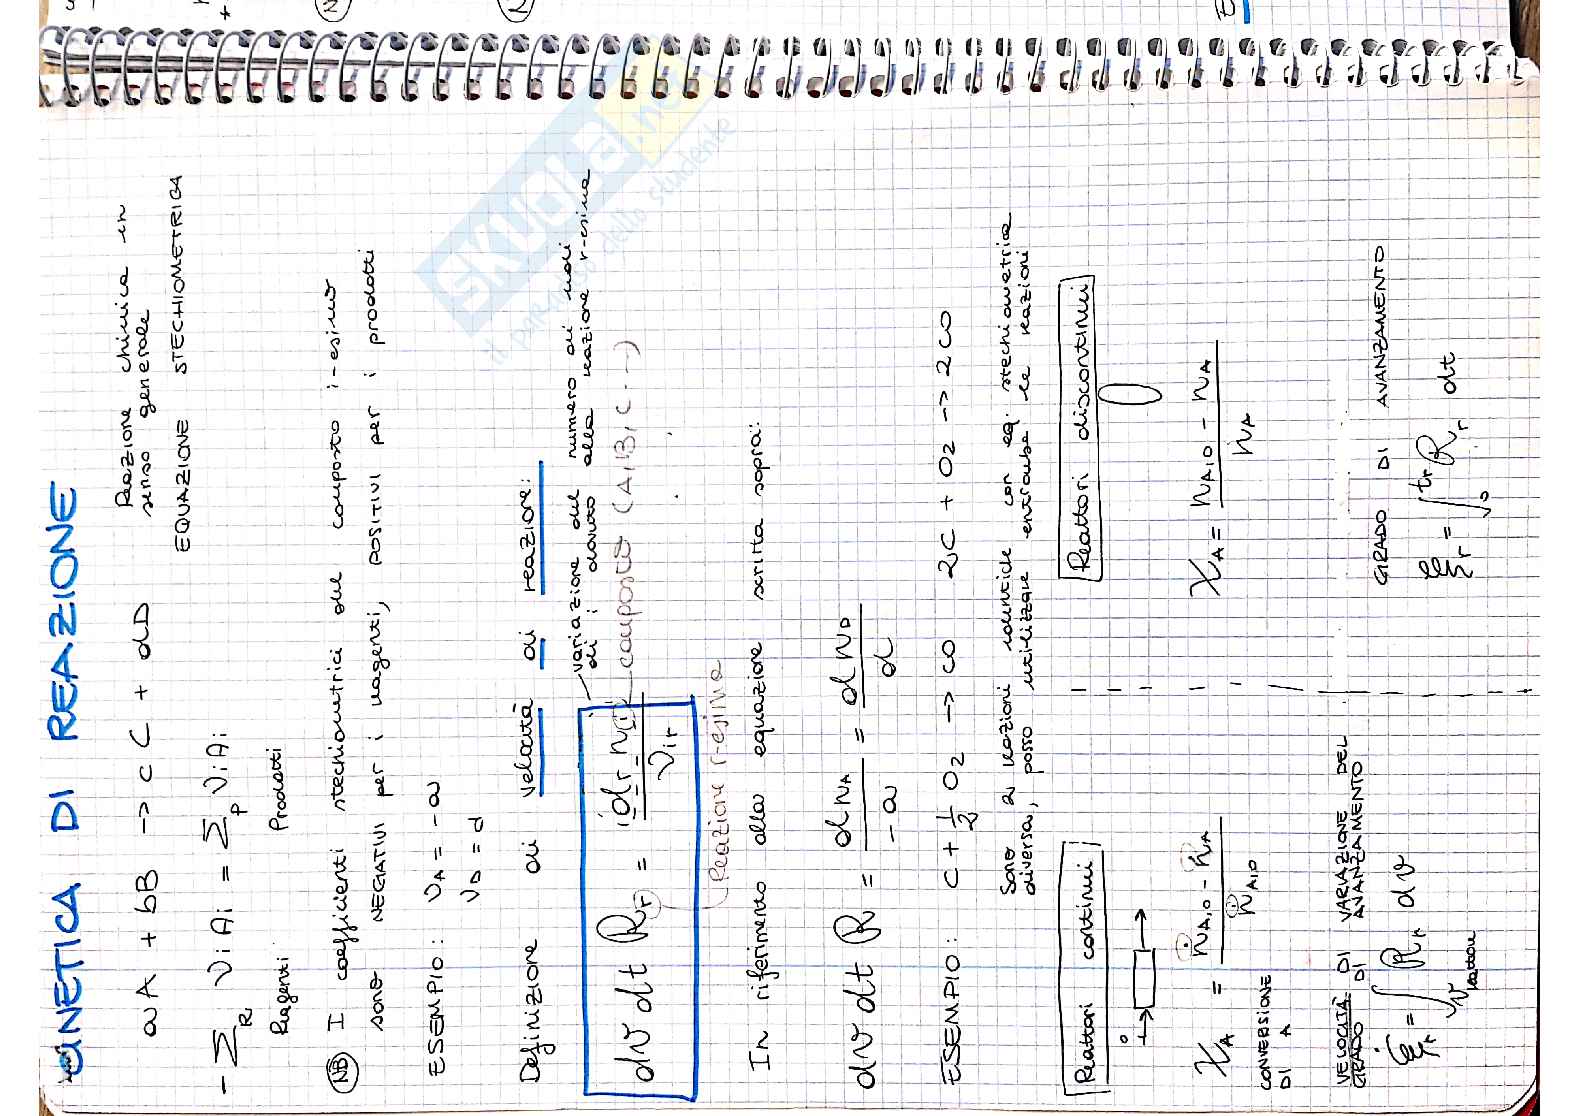 CINETICA DI REAZIONE
aA + bB → cC + dD Reazione chimica in
senso generale
-Σ_R νiAi = Σ_P νiAi EQUAZIONE STECHIOMETRICA
Reagenti Prodotti
NB I coefficienti stechiometrici del composto i-esimo
sono NEGATIVI per i reagenti, POSITIVI per i prodotti
ESEMPIO: νA = -a
νD = d
Definizione di velocità di reazione:
variazione del numero di moli
di i dovuto alla reazione r-esima
dv dt Rr = dr ni / νir
composto (A, B, C ...)
Reazione r-esima
In riferimento alla equazione scritta sopra:
dv dt R = dNA / -a = dND / d
ESEMPIO: C + 1/2 O2 → CO 2C + O2 → 2CO
Sono 2 reazioni identiche con eq. stechiometrica
diversa, posso utilizzare entrambe le reazioni
Reattori continui
χA = (ṅA,0 - ṅA) / ṅA,0
CONVERSIONE
DI A
VELOCITÀ DI VARIAZIONE DEL
GRADO DI AVANZAMENTO
ξ̇r = ∫Vreattore Rr dv
Reattori discontinui
χA = (nA,0 - nA) / nA
GRADO DI AVANZAMENTO
ξr = ∫0^tr Rr dt
SKUOLA.net
il paradiso dello studente